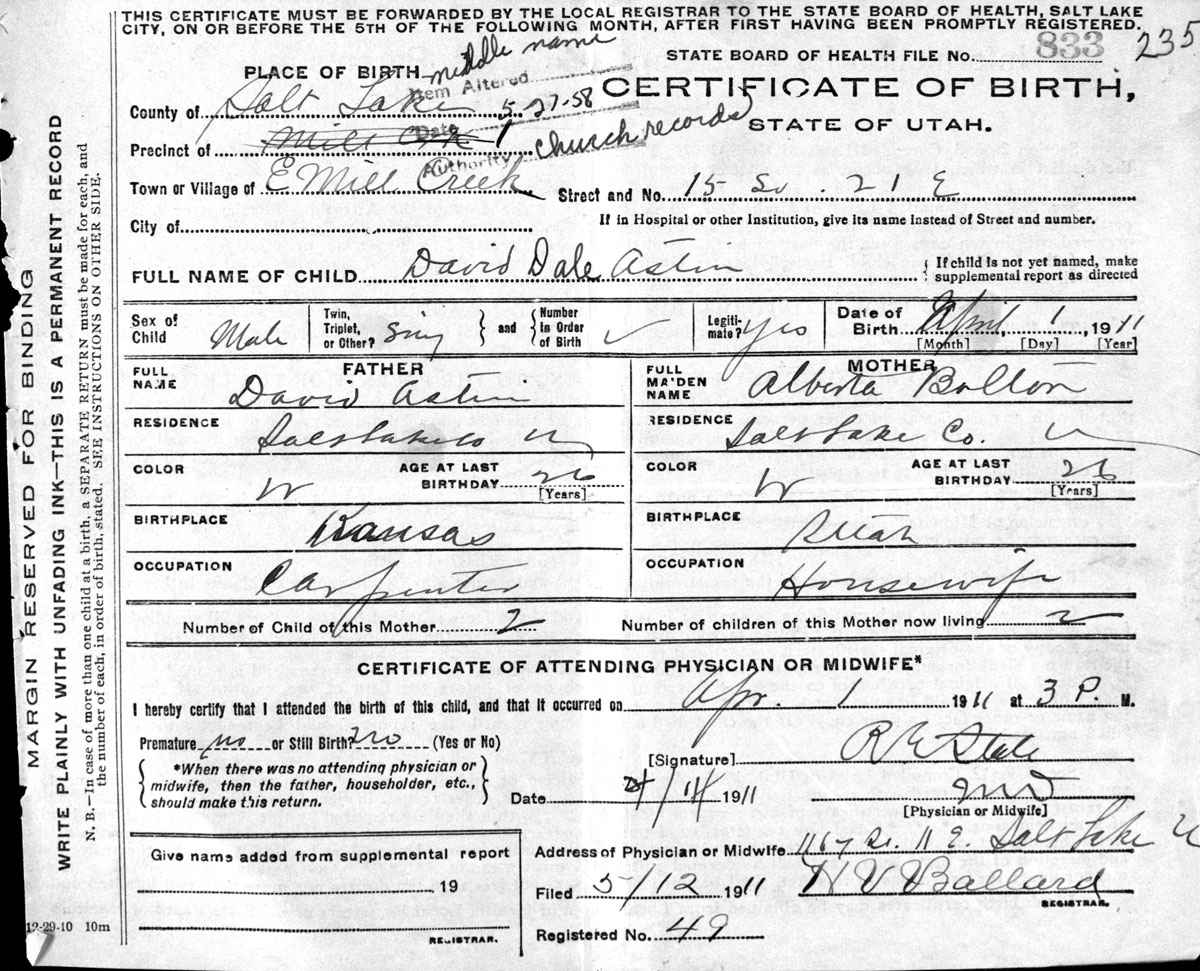 THIS CERTIFICATE MUST BE FORWARDED BY THE LOCAL REGISTRAR TO THE STATE BOARD OF HEALTH, SALT LAKE
CITY, ON OR BEFORE THE 5TH OF THE FOLLOWING MONTH, AFTER FIRST HAVING BEEN PROMPTLY REGISTERED.
235
STATE BOARD OF HEALTH FILE No. 833
PLACE OF BIRTH
middle name
Item Altered
CERTIFICATE OF BIRTH,
STATE OF UTAH.
County of Salt Lake
5-27-58
Date
Precinct of Mill Crk 1
Authority church records
Town or Village of E Mill Creek
Street and No. 15 So. 21 E
City of
If in Hospital or other Institution, give its name instead of Street and number.
FULL NAME OF CHILD David Dale Astin
{ If child is not yet named, make
supplemental report as directed
Sex of Child Male
Twin, Triplet, or Other? Sing
and
Number in Order of Birth
Legiti-mate? yes
Date of Birth April 1, 1911
[Month] [Day] [Year]
FATHER
FULL NAME David Astin
RESIDENCE Salt Lake Co U
COLOR W
AGE AT LAST BIRTHDAY 26
[Years]
BIRTHPLACE Kansas
OCCUPATION Carpenter
MOTHER
FULL MAIDEN NAME Alberta Bolton
RESIDENCE Salt Lake Co. U
COLOR W
AGE AT LAST BIRTHDAY 26
[Years]
BIRTHPLACE Utah
OCCUPATION Housewife
Number of Child of this Mother 2
Number of children of this Mother now living 2
CERTIFICATE OF ATTENDING PHYSICIAN OR MIDWIFE*
I hereby certify that I attended the birth of this child, and that it occurred on Apr. 1 1911 at 3 P. M.
Premature no or Still Birth? no (Yes or No)
*When there was no attending physician or
midwife, then the father, householder, etc.,
should make this return.
[Signature] R E
Date 4/14 1911
MD
[Physician or Midwife]
Address of Physician or Midwife 1167 So. 11 E. Salt Lake U
Give name added from supplemental report
19
REGISTRAR.
Filed 5/12 1911 H V Ballard
REGISTRAR.
Registered No. 49
12-29-10 10m
MARGIN RESERVED FOR BINDING
WRITE PLAINLY WITH UNFADING INK—THIS IS A PERMANENT RECORD
N. B.—In case of more than one child at a birth, a SEPARATE RETURN must be made for each, and
the number of each, in order of birth, stated. SEE INSTRUCTIONS ON OTHER SIDE.